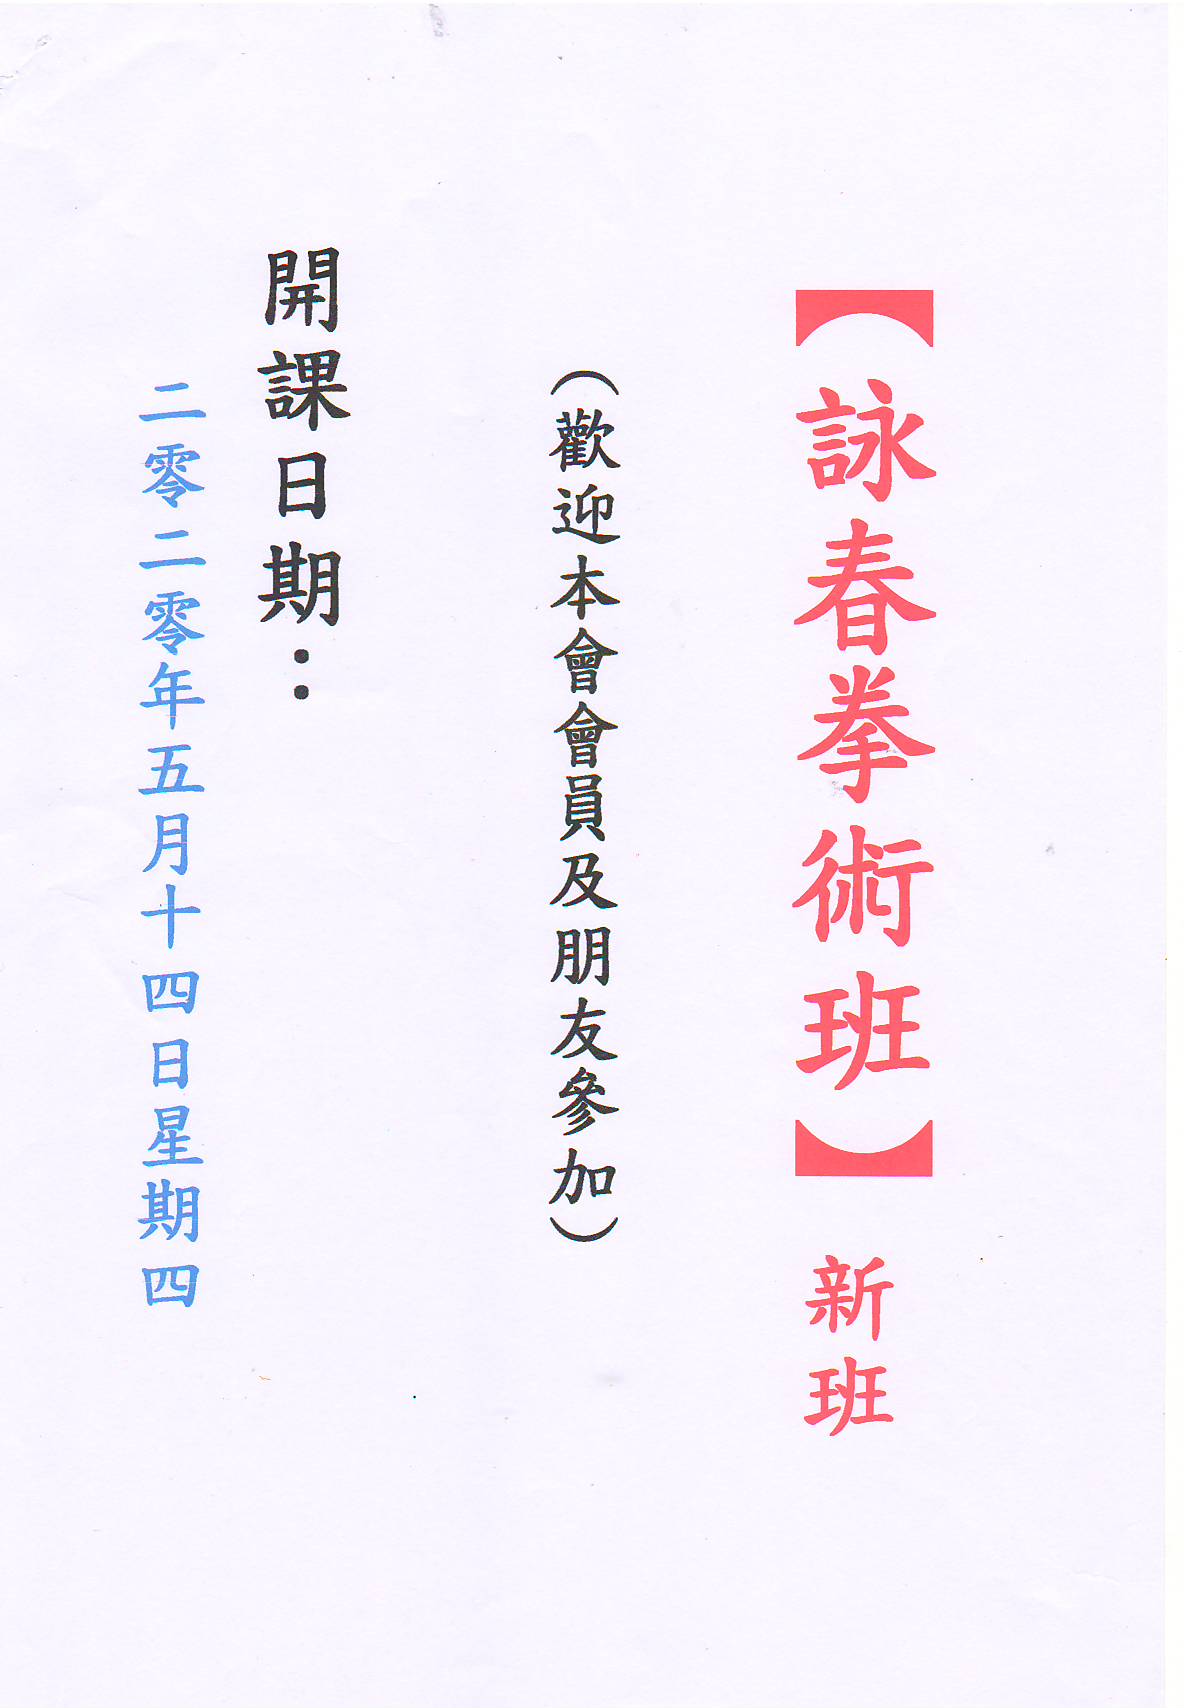 【詠春拳術班】新班
（歡迎本會會員及朋友參加）
開課日期：
二零二零年五月十四日星期四